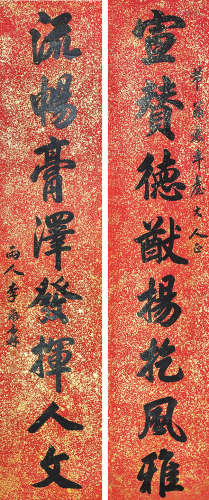 宣贊德猷揚扢風雅
流暢膏澤發揮人文